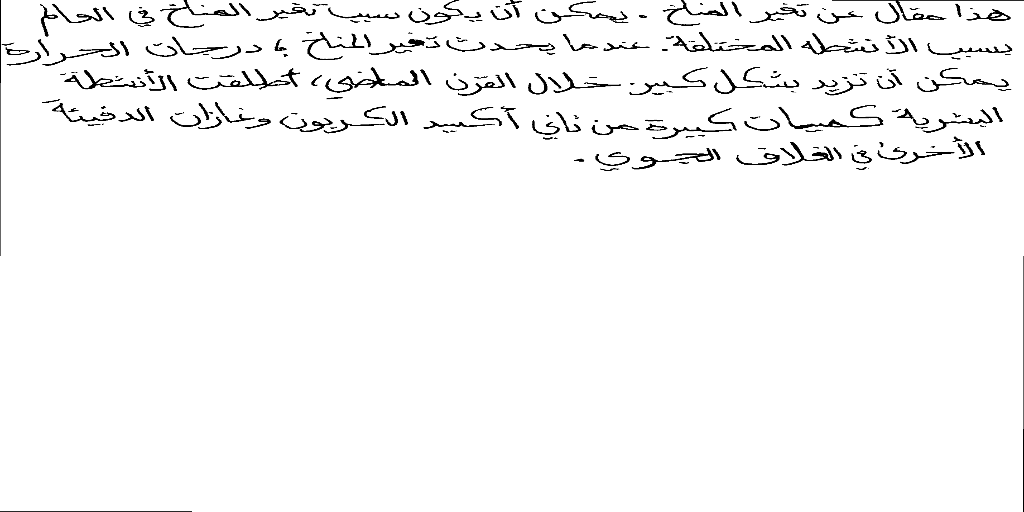 هذا مقال عن تغير المناخ . يمكن أن يكون سبب تغير المناخ في العالم
بسبب الأنشطه المختلفة. عندما يحدث تغير المناخ ، درجات الحرارة
يمكن أن تزيد بشكل كبير خلال القرن الماضي، أطلقت الأنشطة
البشرية كميات كبيرة من ثاني أكسيد الكربون وغازات الدفيئة
الأخرى في الغلاف الجوي .